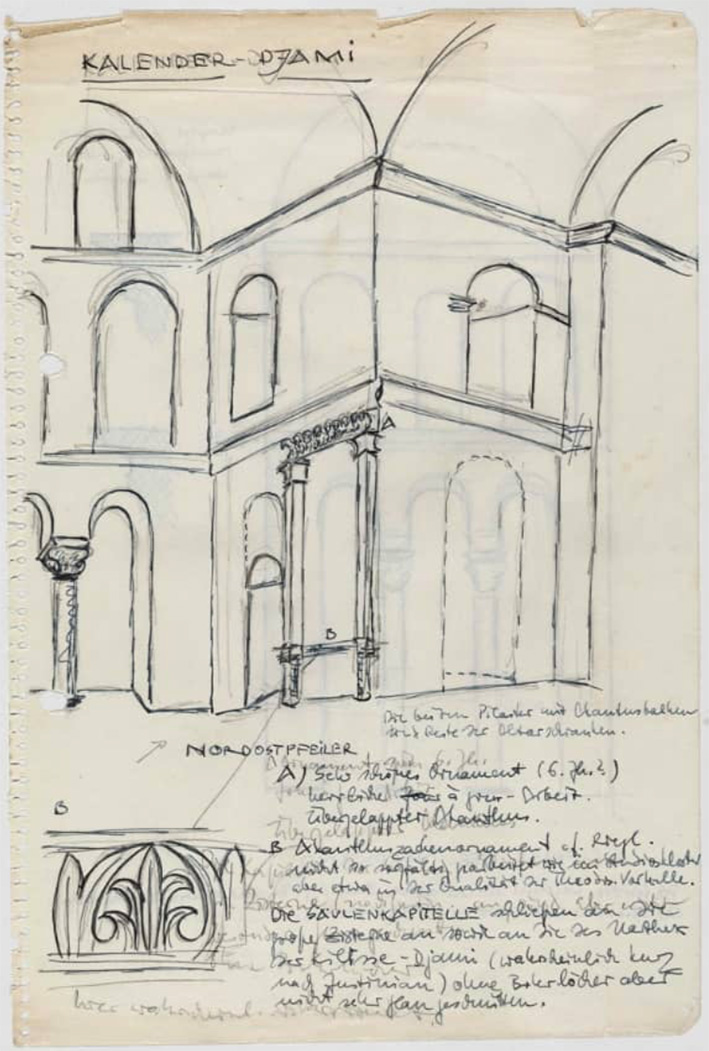 KALENDER-DJAMi
A
B
Die beiden Pilaster mit Akanthusbalken
sind Reste der Altarschranken.
NORDOSTPFEILER
A) Sehr schönes Ornament (6. Jh.?)
herrliche à jour-Arbeit.
Übergelappter Akanthus.
B
B Akanthuszackenornament cf. Riegl.
nicht so sorgfältig gearbeitet wie im Studioskloster
aber etwa in der Qualität der Theodos. Vorhalle.
Die SÄULENKAPITELLE schließen an die
große Zisterne an sowie an die des Narthex
der Kilisse-Djami (wahrscheinlich kurz
nach Justinian) ohne Bohrlöcher aber
nicht sehr geschnitten.